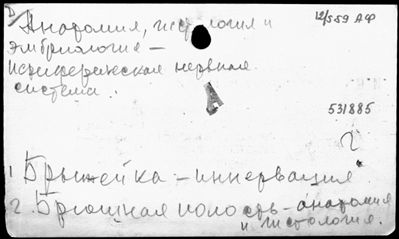 В/Анатомия, гистология и
12/559 АФ
эмбриология –
периферическая нервная
система.
А
531885
2
1 Брыжейка – иннервация
2. Брюшная полость – анатомия
и гистология.